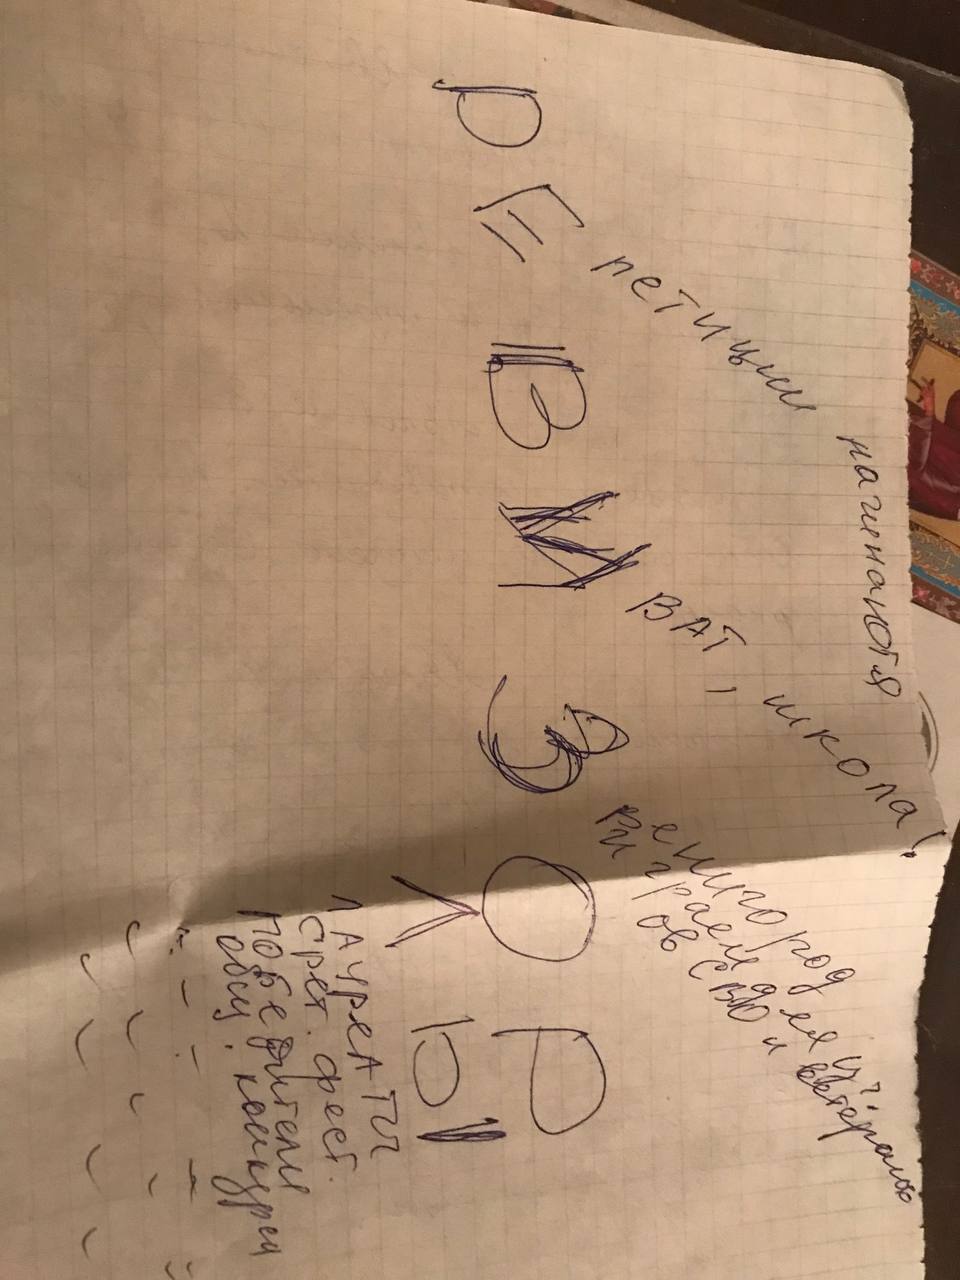 начинаются
петиции
ВАТ, школа!
венигород
играем для уч.
ов СВО и ветеранов
РЕВИЗОР
Л Ы
ЛАУРЕАТЫ
Срет. фест.
ПОБЕдители
общ. конкурса